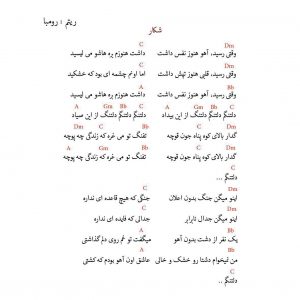 ریتم : رومبا
شکار
Dm C
وقتی رسید، آهو هنوز نفس داشت داشت هنوزم بره هاشو می لیسید
Dm C
وقتی رسید، قلبی هنوز تپش داشت اما اونم چشمه ای بود که خشکید
Dm C
وقتی رسید، آهو هنوز نفس داشت داشت هنوزم بره هاشو می لیسید
A Gm Bb C A Gm Bb C
دلتنگم دلتنگم دلتنگ از این بیداد دلتنگم دلتنگم دلتنگ از این صیاد
Dm C Bb
گدار بالای کوه پناه جون قوچه تفنگ تو می غره که زندگی چه پوچه
Dm C Bb
گدار بالای کوه پناه جون قوچه تفنگ تو می غره که زندگی چه پوچه
C
دلتنگم ..
Dm C
اینو میگن جنگ بدون اعلان جنگی که هیچ قاعده ای نداره
Dm C
اینو میگن جدال نابرابر جدالی که فایده ای نداره
Bb A
یک نفر از دشت بدون آهو میگفت تو غم روی دلم گذاشتی
Bb A
من نمیخوام دشتا رو خشک و خالی عاشق اون آهو بودم که کشتی
C
دلتنگم ..